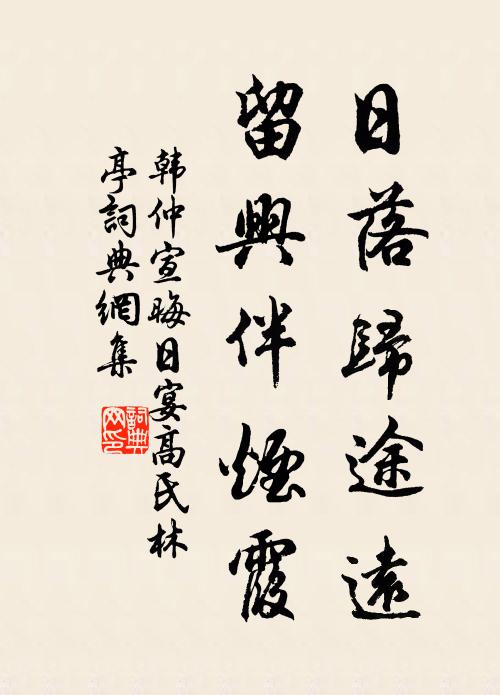 日落歸途遠
留興伴煙霞
韩仲宣晦日宴高氏林
亭詞典網集
詞典
网印